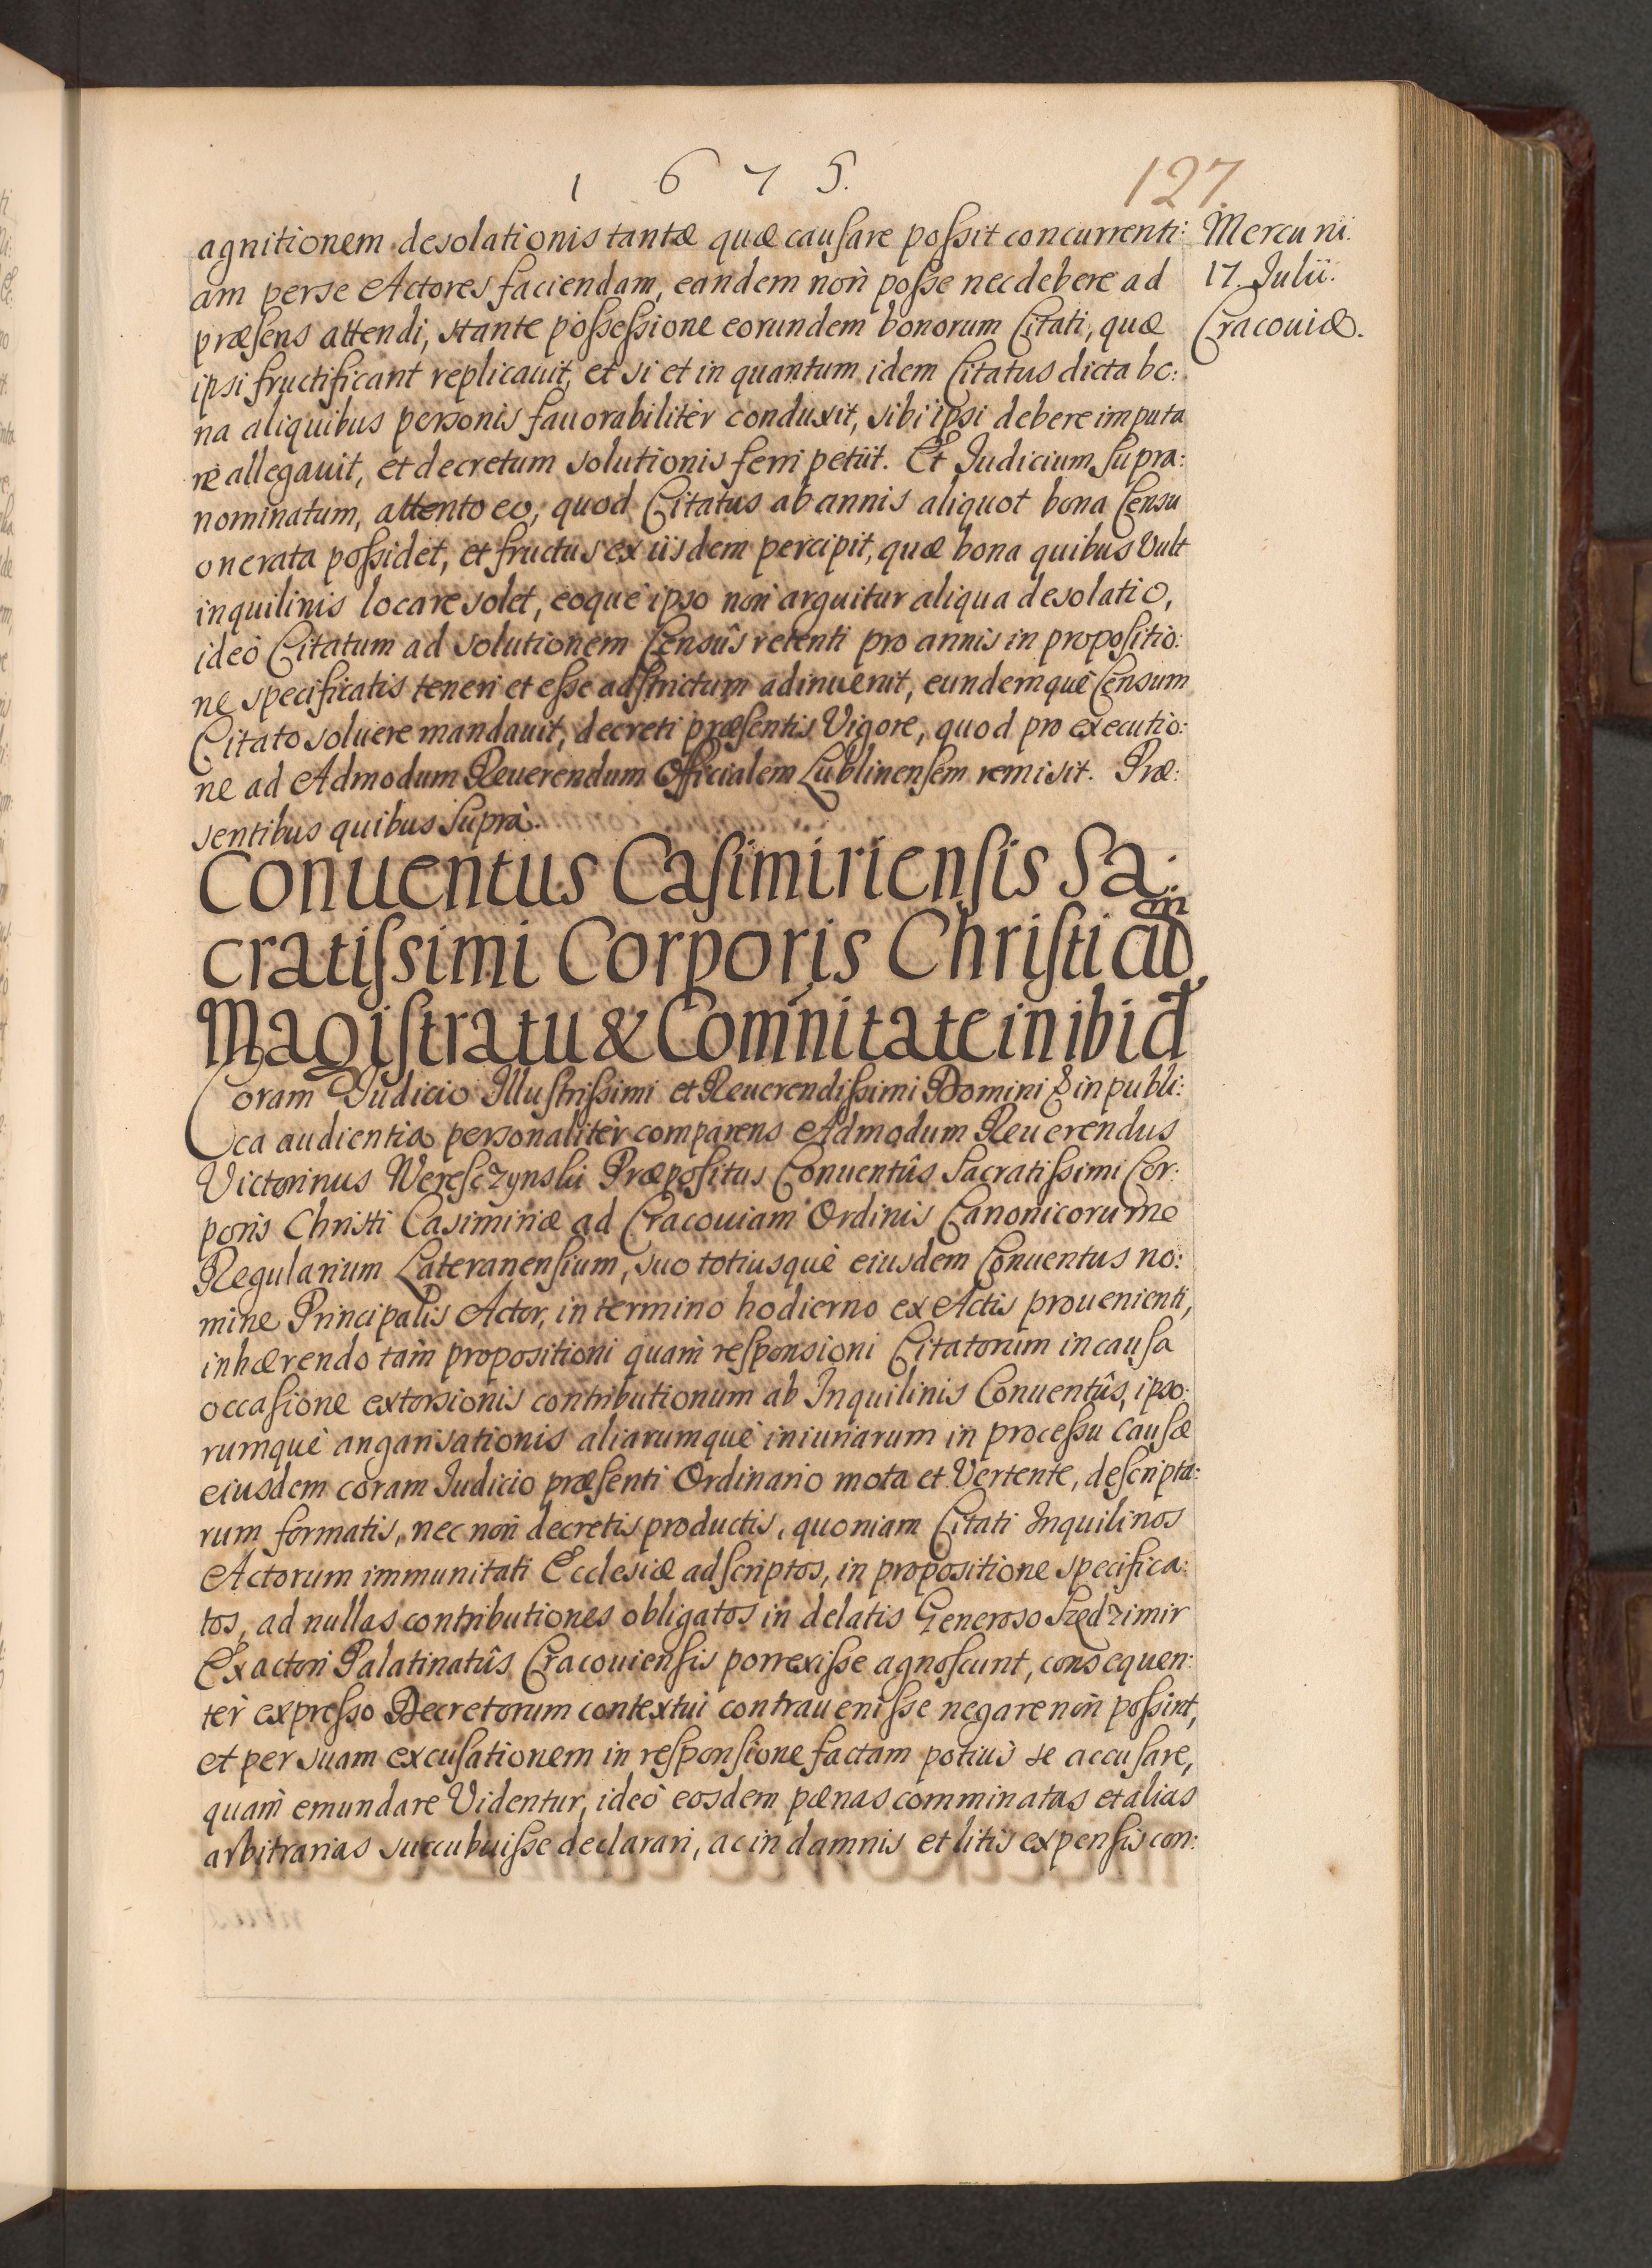 1 6 7 5.
127.
Mercurii.
17. Julii.
Cracouiæ.
agnitionem desolationis tantæ quæ causare possit concurrenti:
am per se Actores faciendam, eandem non posse nec debere ad
præsens attendi, stante possessione eorundem bonorum Citati, quæ
ipsi fructificant replicauit, et si et in quantum idem Citatus dicta bo:
na aliquibus personis fauorabilitèr conduxit, sibi ipsi debere imputa
re allegauit, et decretum solutionis ferri petiit. Et Judicium supra:
nominatum, attento eo, quod Citatus ab annis aliquot bona Censu
onerata possidet, et fructus ex iisdem percipit, quæ bona quibus Vult
inquilinis locare solet, eoquè ipso non arguitur aliqua desolatio,
ideò Citatum ad solutionem Censûs retenti pro annis in propositio:
ne specificatis teneri et esse adstrictum adinuenit, eundemquè Censum
Citato soluere mandauit, decreti præsentis Vigore, quod pro executio:
ne ad Admodum Reuerendum Officialem Lublinensem remisit. Præ:
sentibus quibus suprà.
Conuentus Casimiriensis Sa:
cratissimi Corporis Christi cum
Magistratu & Com̃nitate inibid
Coram Judicio Illustrissimi et Reuerendissimi Domini & in publi:
ca audientia personalitèr comparens Admodum Reuerendus
Victorinus Weresczynski Præpositus Conuentûs Sacratissimi Cor:
poris Christi Casimiriæ ad Cracouiam Ordinis Canonicorum
Regularium Lateranensium, suo totiusquè eiusdem Conuentus no:
mine Principalis Actor, in termino hodierno ex Actis prouenienti,
inhærendo tàm propositioni quàm responsioni Citatorum in causa
occasione extorsionis contributionum ab Inquilinis Conuentûs, ipso:
rumquè angarisationis aliarumquè iniuriarum in processu causæ
eiusdem coram Judicio præsenti Ordinario mota et Vertente, descripta:
rum formatis, nec non decretis productis, quoniam Citati Inquilinos
Actorum immunitati Ecclesiæ adscriptos, in propositione specifica:
tos, ad nullas contributiones obligatos in delatis Generoso Szędzimir
Exactori Palatinatûs Cracouiensis porrexisse agnoscunt, consequen:
tèr expresso Decretorum contextui contrauenisse negare non possint,
et per suam excusationem in responsione factam potiùs se accusare,
quàm emundare Videntur, ideò eosdem pænas comminatas et alias
arbitrarias succubuisse declarari, ac in damnis et litis expensis con: